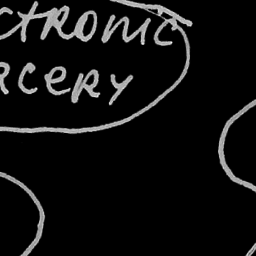 CTRONIC
RCERY